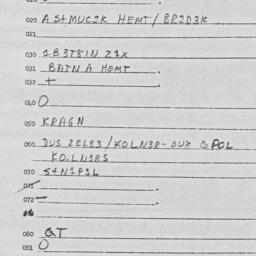 020 A S+MUC2K HEMT/BR2D3K
021
030 1B3T8IN 21X
031 BATN A HEMT
032 +
040 O
050 KRAGN
060 DUS ZELE3/KOLN3R-OUX QPOL
KOLN3RS
070 S+N1P3L
071
072 —
080 QT
081 O